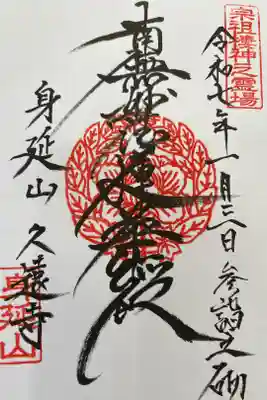 宗祖棲神之霊場
令和七年一月三日 参詣之砌
南無妙法蓮華経
身延山 久遠寺
身延山